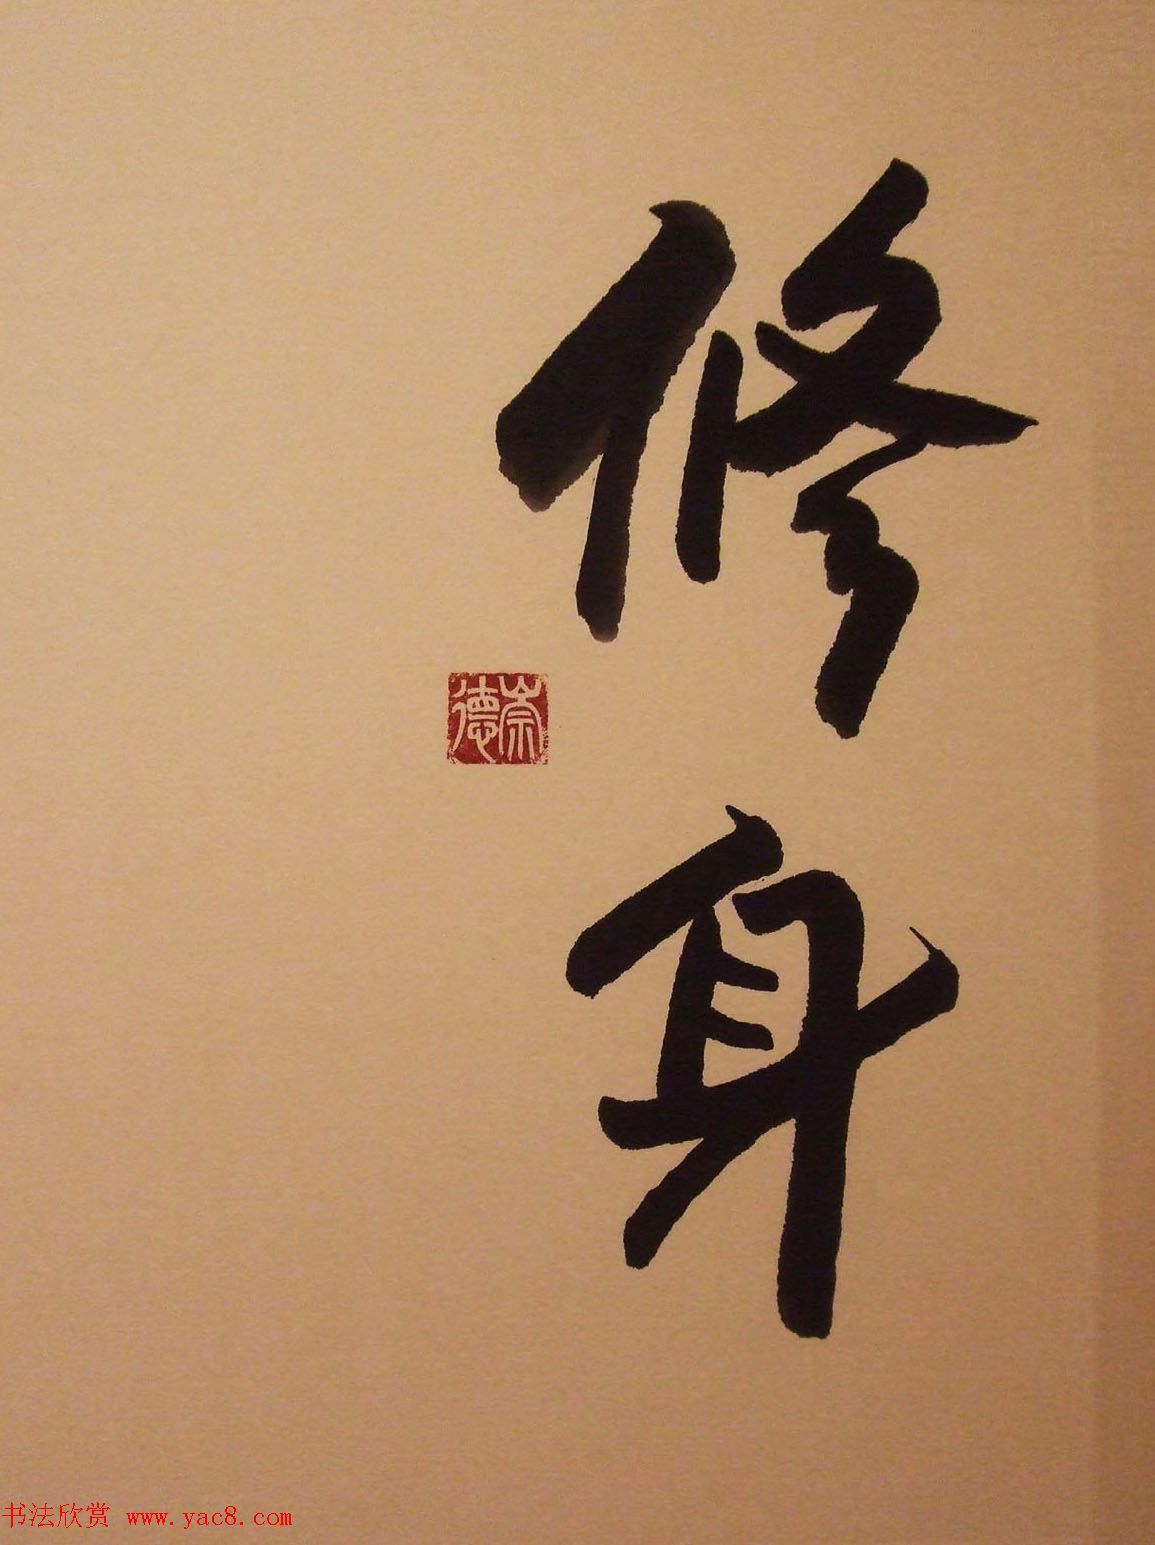 修身
崇德
书法欣赏 www.yac8.com